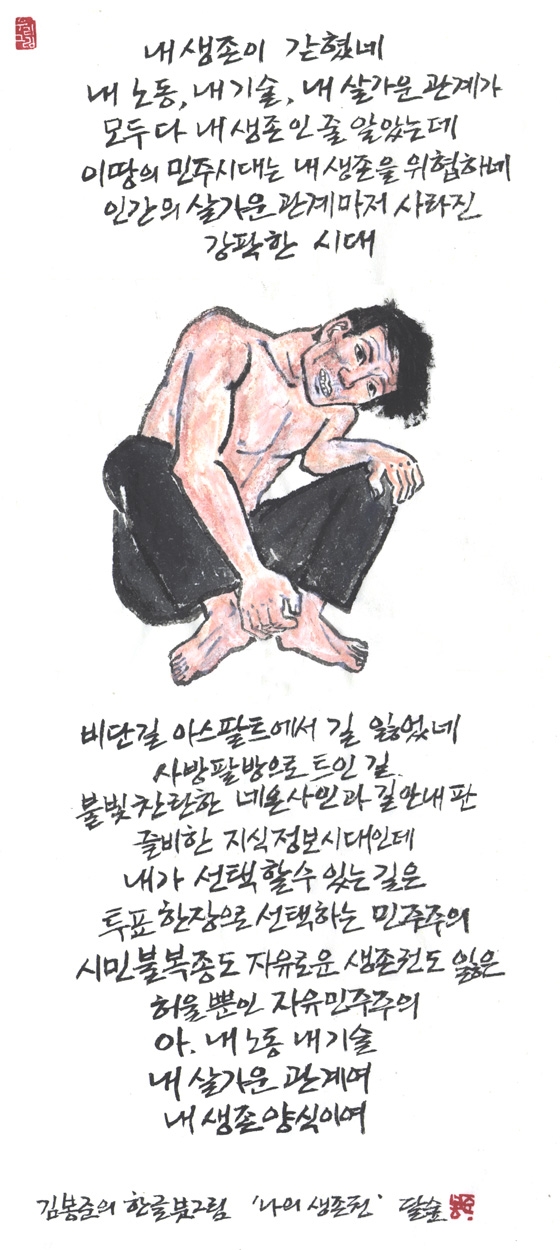 우리
그림
내 생존이 갇혔네
내 노동, 내 기술, 내 살가운 관계가
모두 다 내 생존인 줄 알았는데
이땅의 민주시대는 내 생존을 위협하네
인간의 살가운 관계마저 사라진
강팍한 시대
비단길 아스팔트에서 길 잃었네
사방팔방으로 트인 길.
불빛 찬란한 네온사인과 길안내판
즐비한 지식정보시대인데
내가 선택할 수 있는 길은
투표 한장으로 선택하는 민주주의
시민불복종도 자유로운 생존권도 잃은
허울뿐인 자유민주주의
아. 내 노동 내 기술
내 살가운 관계여
내 생존양식이여
김봉준의 한글붓그림 '나의 생존전' 달숲